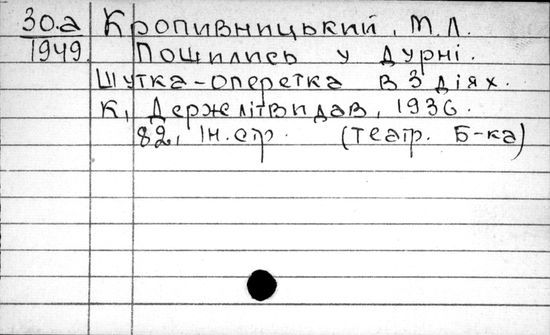 30.а Кропивницький, М.Л.
1949. Пошились у дурні.
Шутка-оперетка в 3 діях.
К, Держлітвидав, 1936.
82, Ін. стр. (театр. Б-ка)